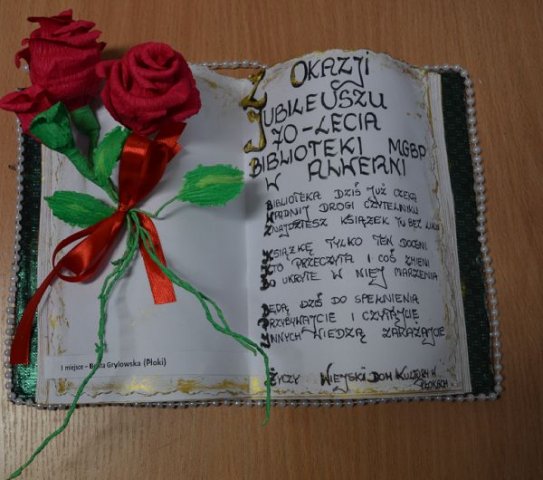 Z OKAZJI
JUBILEUSZU
70-LECIA
BIBLIOTEKI MGBP
W ALKERNI
BIBLIOTEKA DZIŚ JUŻ CZEKA
WPADNIJ DROGI CZYTELNIKU
ZNAJDZIESZ KSIĄŻEK TU BEZ LIKU
KSIĄŻKĘ TYLKO TEN DOCENI
KTO PRZECZYTA I COŚ ZMIENI
O UKRYTE W NIEJ MARZENIA
BĘDĄ DZIŚ DO SPEŁNIENIA
PRZYBYWAJCIE I CZYTAJCIE
INNYCH WIEDZĄ ZARAŻAJCIE
ŻYCZY WIEJSKI DOM KULTURY W
PŁOKACH
I miejsce - Beata Grylowska (Płoki)